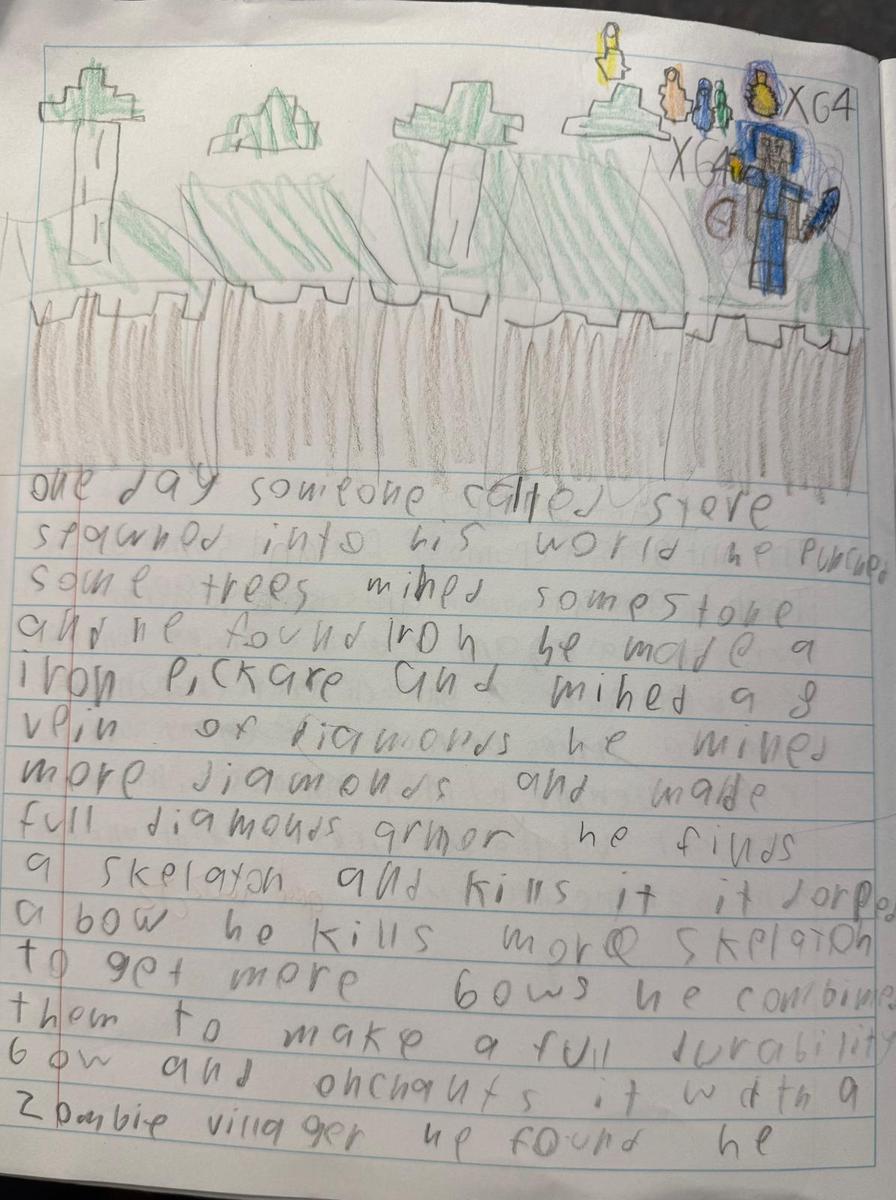 X64
X64
one day someone called steve
spawned into his world he punched
some trees mined some stone
and he found iron he made a
iron pickaxe and mined a 8
vein of diamonds he mined
more diamonds and made
full diamonds armor he finds
a skelaton and kills it it dorped
a bow he kills more skelaton
to get more bows he combines
them to make a full durability
bow and enchants it with a
zombie villager he found he